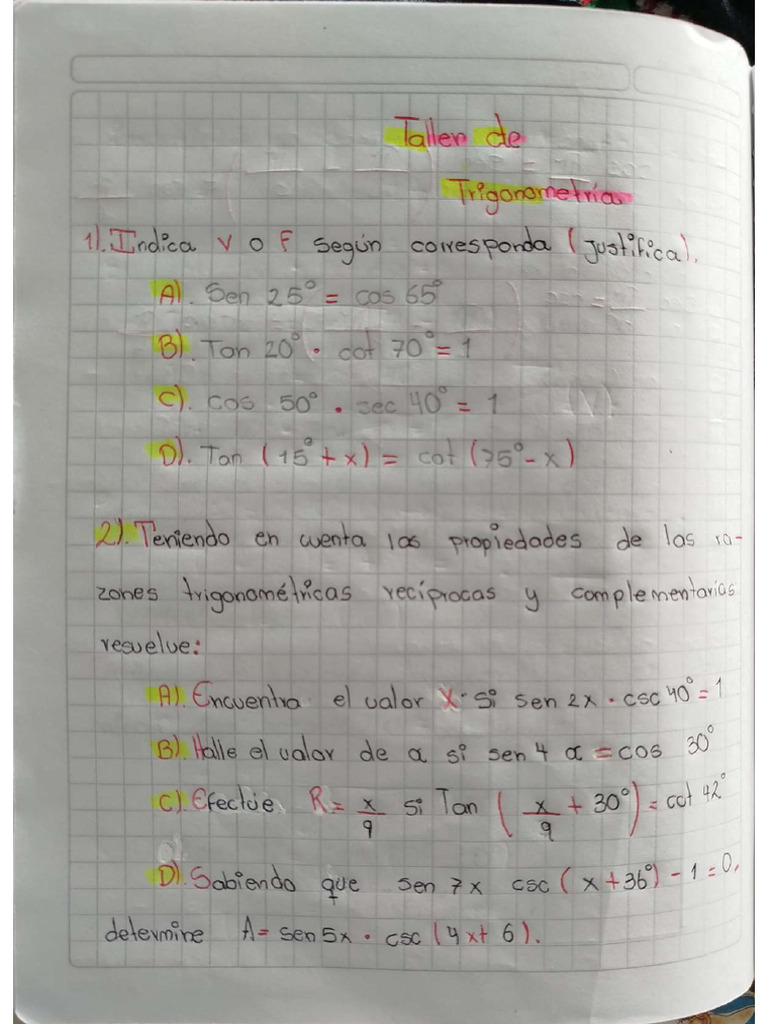 Taller de
Trigonometría
1). Indica V O F según corresponda (justifica).
A). Sen 25° = cos 65°
B). Tan 20° · cot 70° = 1
C). cos 50° · sec 40° = 1
D). Tan (15° + x) = cot (75° - x)
2). Teniendo en cuenta las propiedades de las ra-
zones trigonométricas recíprocas y complementarias
resuelve:
A). Encuentra el valor X · si sen 2x · csc 40° = 1
B). Halle el valor de a si sen 4 a = cos 30°
C). Efectúe R = x/9 si Tan (x/9 + 30°) = cot 42°
D). Sabiendo que sen 7x csc (x + 36°) - 1 = 0,
determine A = sen 5x · csc (4x + 6).